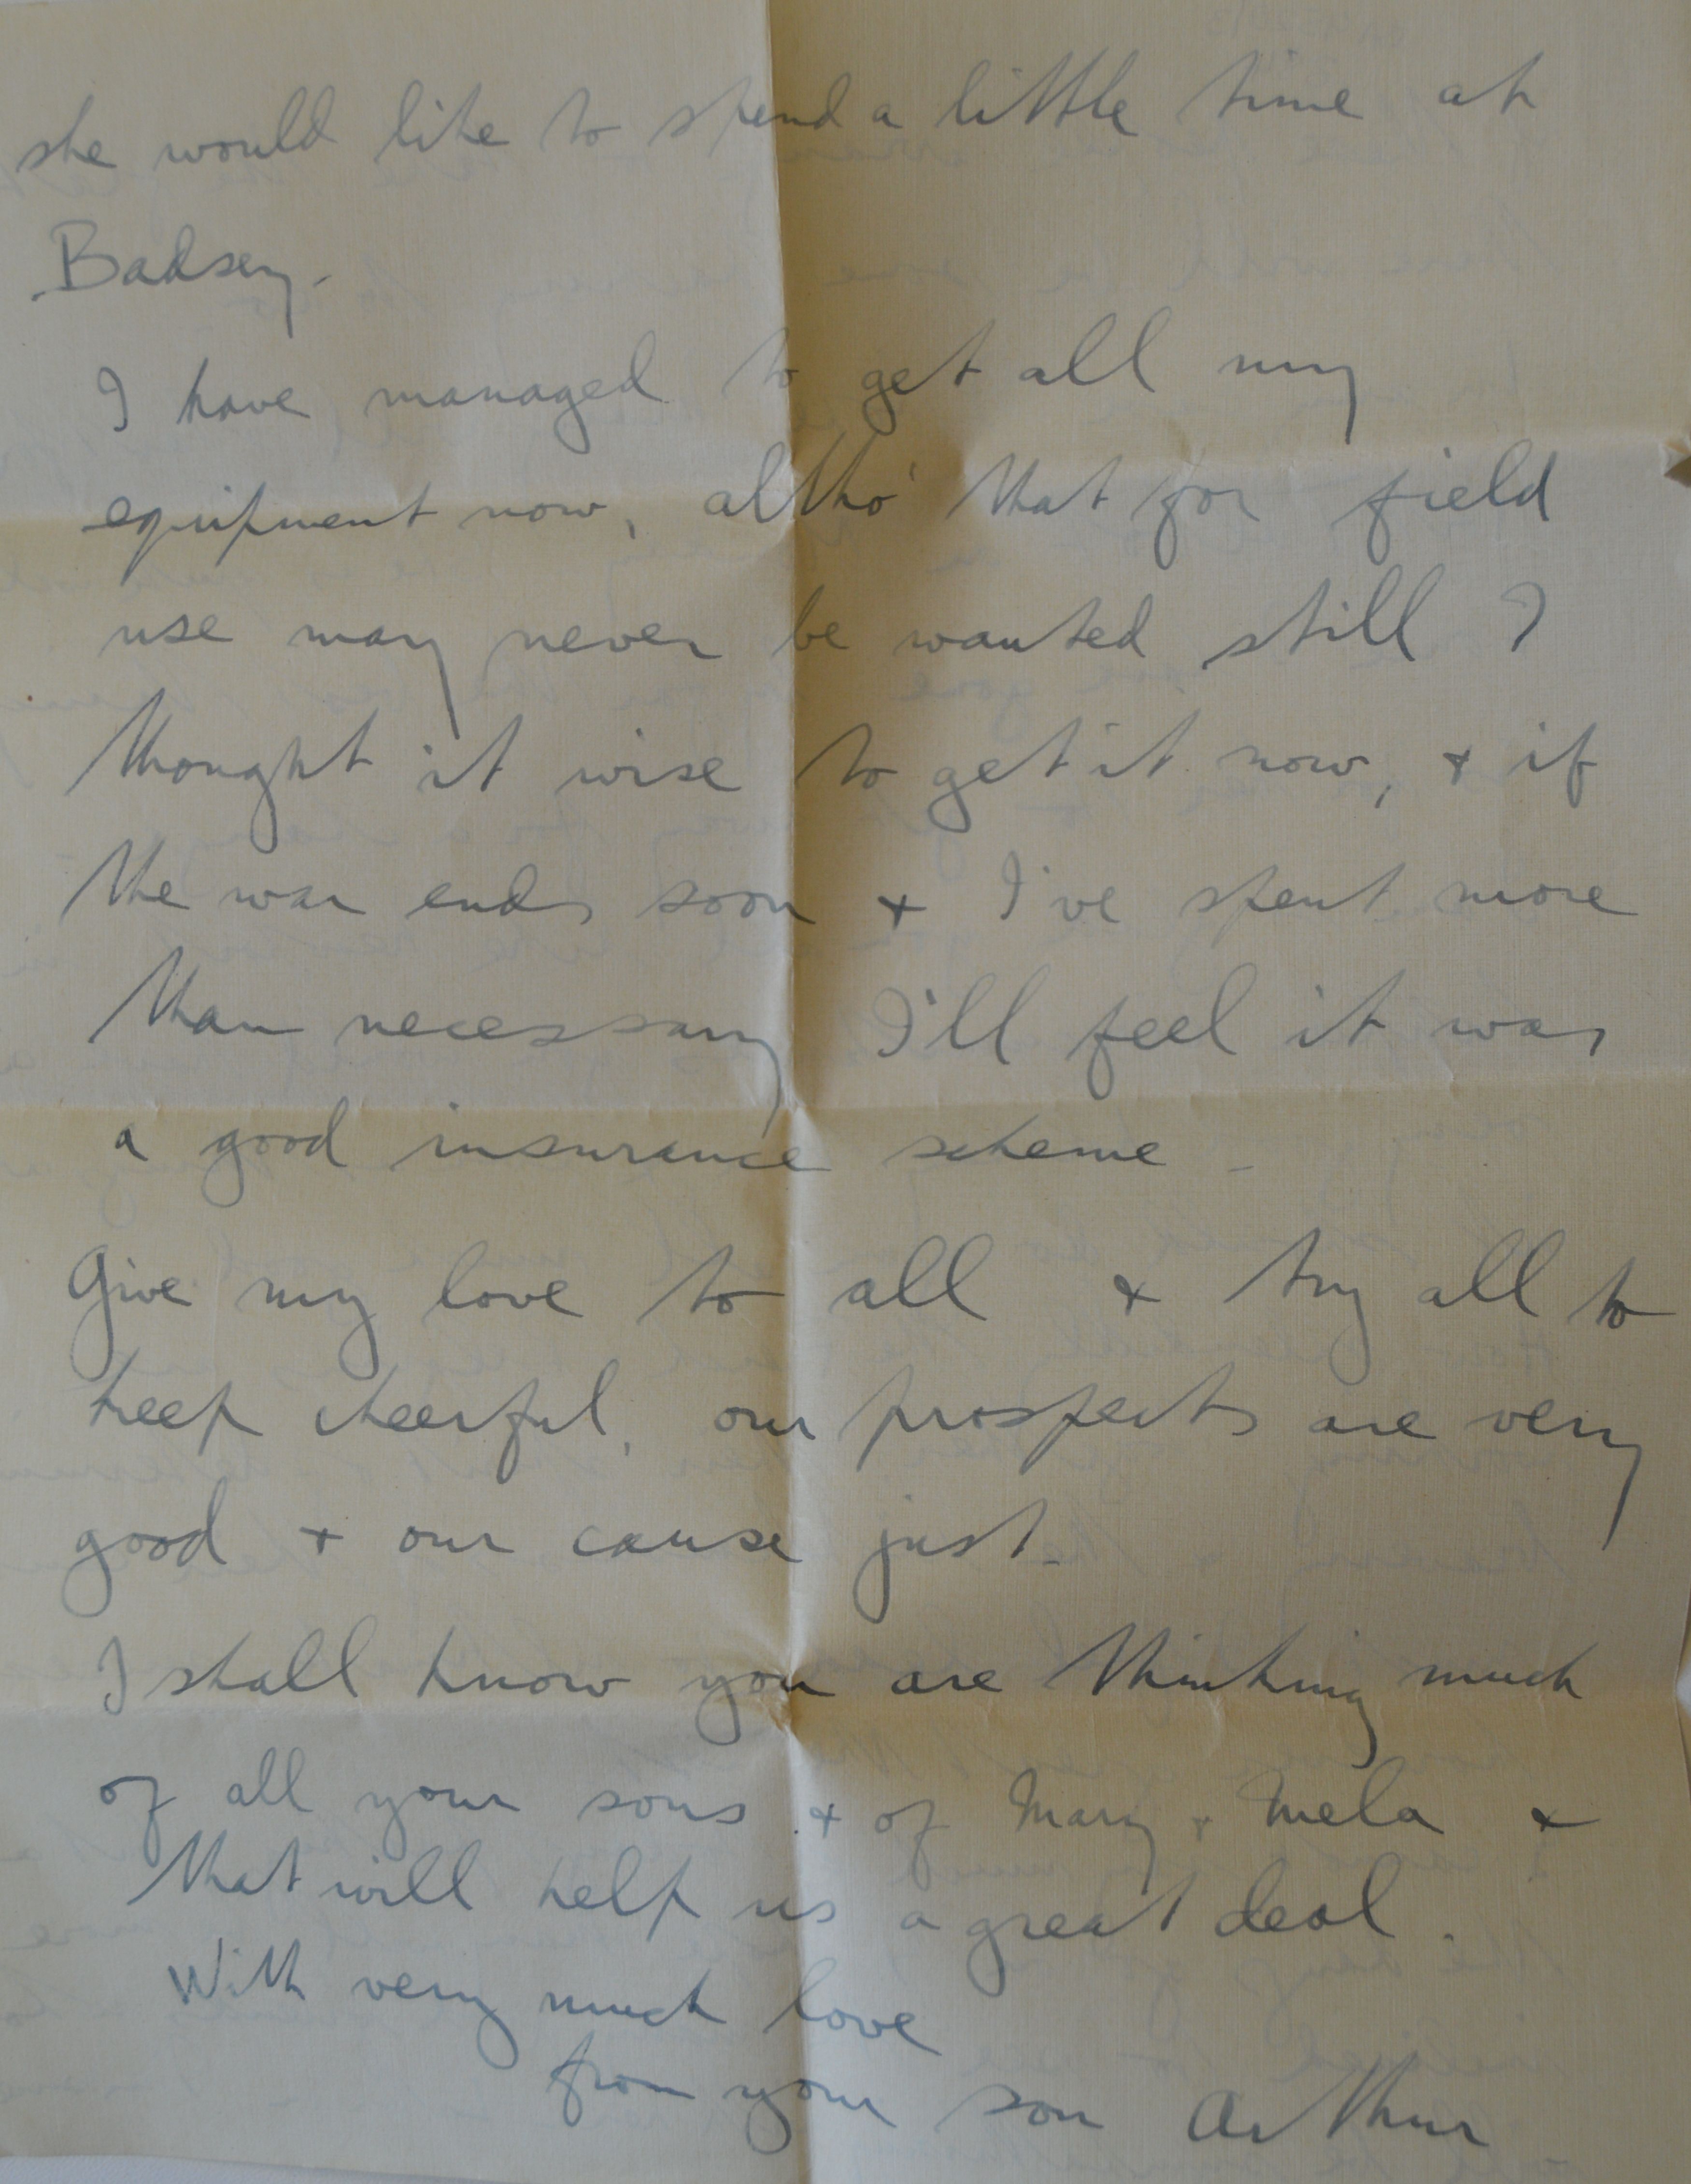 she would like to spend a little time at
Badsey.
I have managed to get all my
equipment now, altho' that for field
use may never be wanted still I
thought it wise to get it now, + if
the war ends soon + I've spent more
than necessary I'll feel it was
a good insurance scheme -
Give my love to all + try all to
keep cheerful, our prospects are very
good + our cause just.
I shall know you are thinking much
of all your sons + of Mary + Mela +
that will help us a great deal.
With very much love
from your son Arthur -